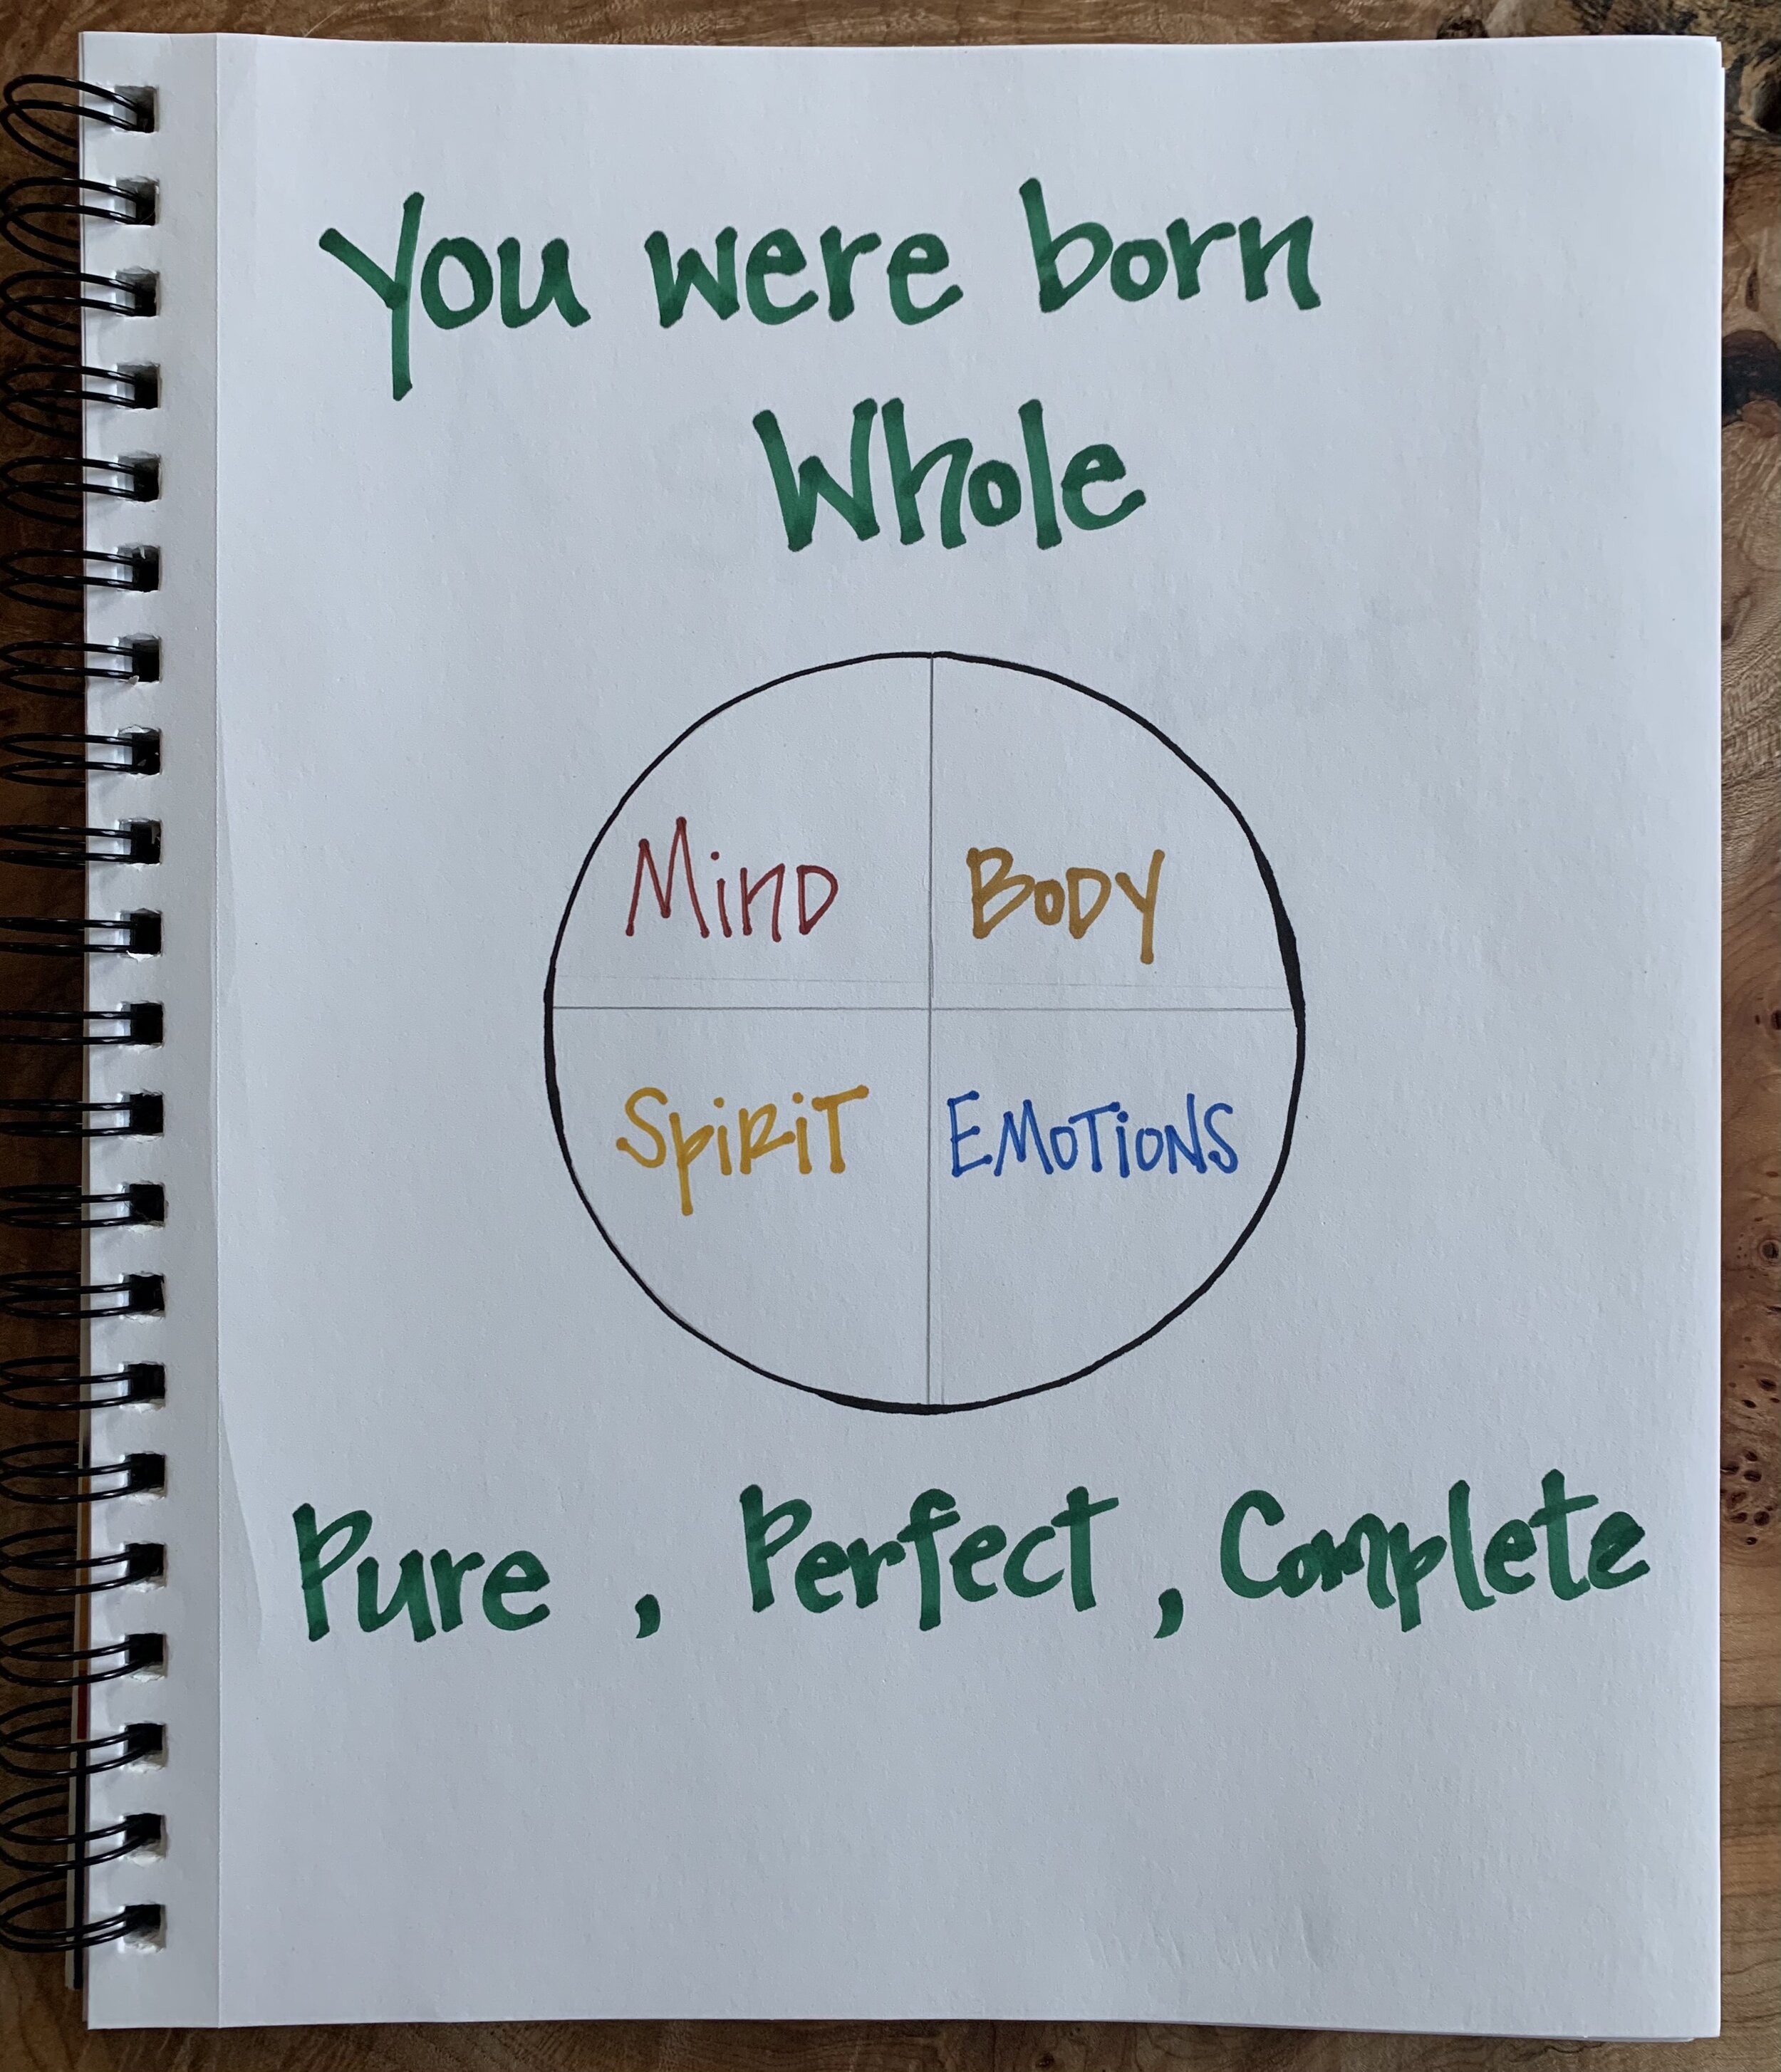 You were born
Whole
Mind
Body
Spirit
Emotions
Pure, Perfect, Complete